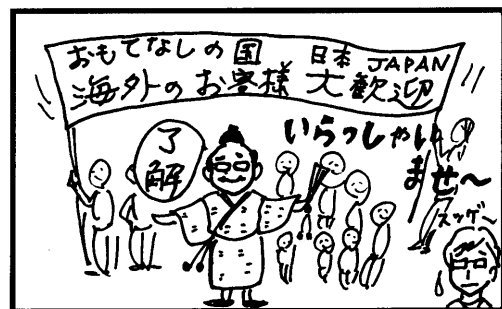 おもてなしの国 日本 JAPAN
海外のお客様 大歓迎
いらっしゃい
ませ~
了解
スッゲー